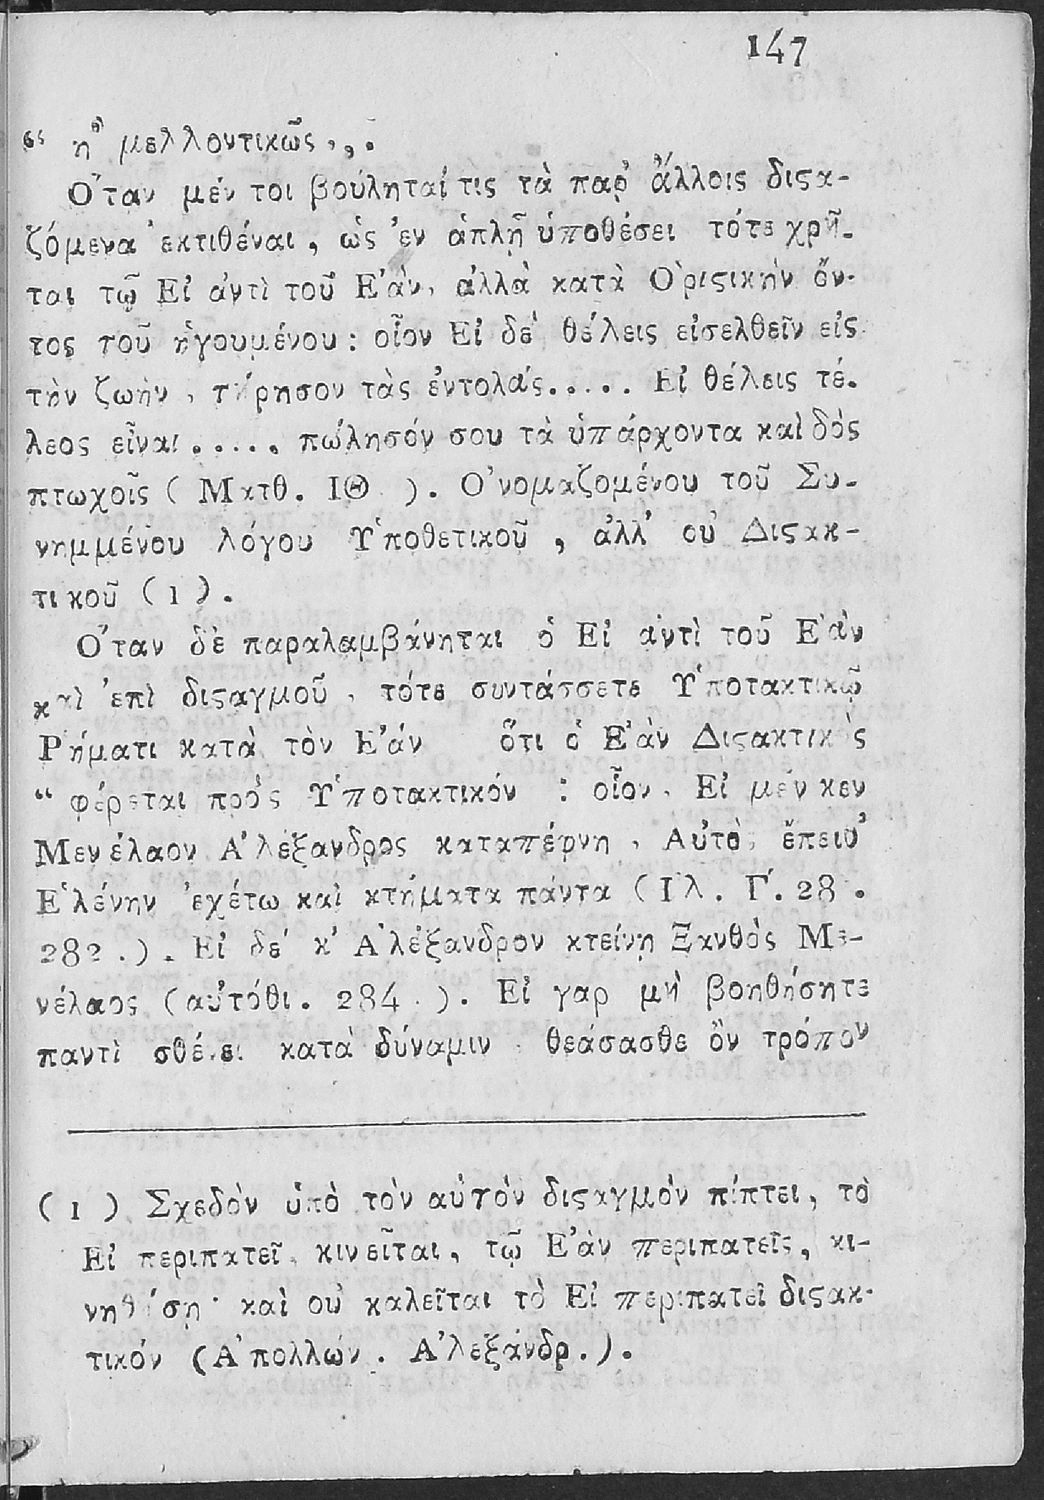 147
“ ἢ μελλοντικῶς ,, .
Ὅταν μέν τοι βούληταί τις τὰ παρ' ἄλλοις διϛα-
ζόμενα ἐκτιθέναι, ὡς ἐν ἁπλῇ ὑποθέσει τότε χρῆ-
ται τῷ Εἰ ἀντὶ τοῦ Ἐὰν, ἀλλὰ κατὰ Ὁριϛικὴν ὄν-
τος τοῦ ἡγουμένου: οἷον Εἰ δὲ θέλεις εἰσελθεῖν εἰς
τὴν ζωὴν, τήρησον τὰς ἐντολάς..... Εἰ θέλεις τέ-
λεος εἶναι..... πώλησόν σου τὰ ὑπάρχοντα καὶ δὸς
πτωχοῖς ( Ματθ. ΙΘ ). Ὀνομαζομένου τοῦ Συ-
νημμένου λόγου Ὑποθετικοῦ, ἀλλ' οὐ Διϛακ-
τικοῦ ( 1 ).
Ὅταν δὲ παραλαμβάνηται ὁ Εἰ ἀντὶ τοῦ Ἐὰν
καὶ ἐπὶ διϛαγμοῦ, τότε συντάσσετε Ὑποτακτικῷ
Ῥήματι κατὰ τὸν Ἐάν ὅτι ὁ Ἐὰν Διϛακτικὸς
“ φέρεται πρὸς Ὑποτακτικόν : οἷον, Εἰ μέν κεν
Μενέλαον Ἀλέξανδρος καταπέφνη, Αὐτὸς ἔπειθ'
Ἑλένην ἐχέτω καὶ κτήματα πάντα ( Ἰλ. Γ. 28 .
282 .). Εἰ δέ κ' Ἀλέξανδρον κτείνῃ Ξανθὸς Με-
νέλαος (αὐτόθι. 284 ). Εἰ γαρ μὴ βοηθήσητε
παντὶ σθένει κατὰ δύναμιν, θεάσασθε ὃν τρόπον
( 1 ) Σχεδὸν ὑπὸ τὸν αὐτὸν διϛαγμὸν πίπτει, τὸ
Εἰ περιπατεῖ, κινεῖται, τῷ Ἐὰν περιπατεῖς, κι-
νηθήσῃ· καὶ οὐ καλεῖται τὸ Εἰ περιπατεῖ διϛακ-
τικόν (Ἀπολλών. Ἀλεξάνδρ.).